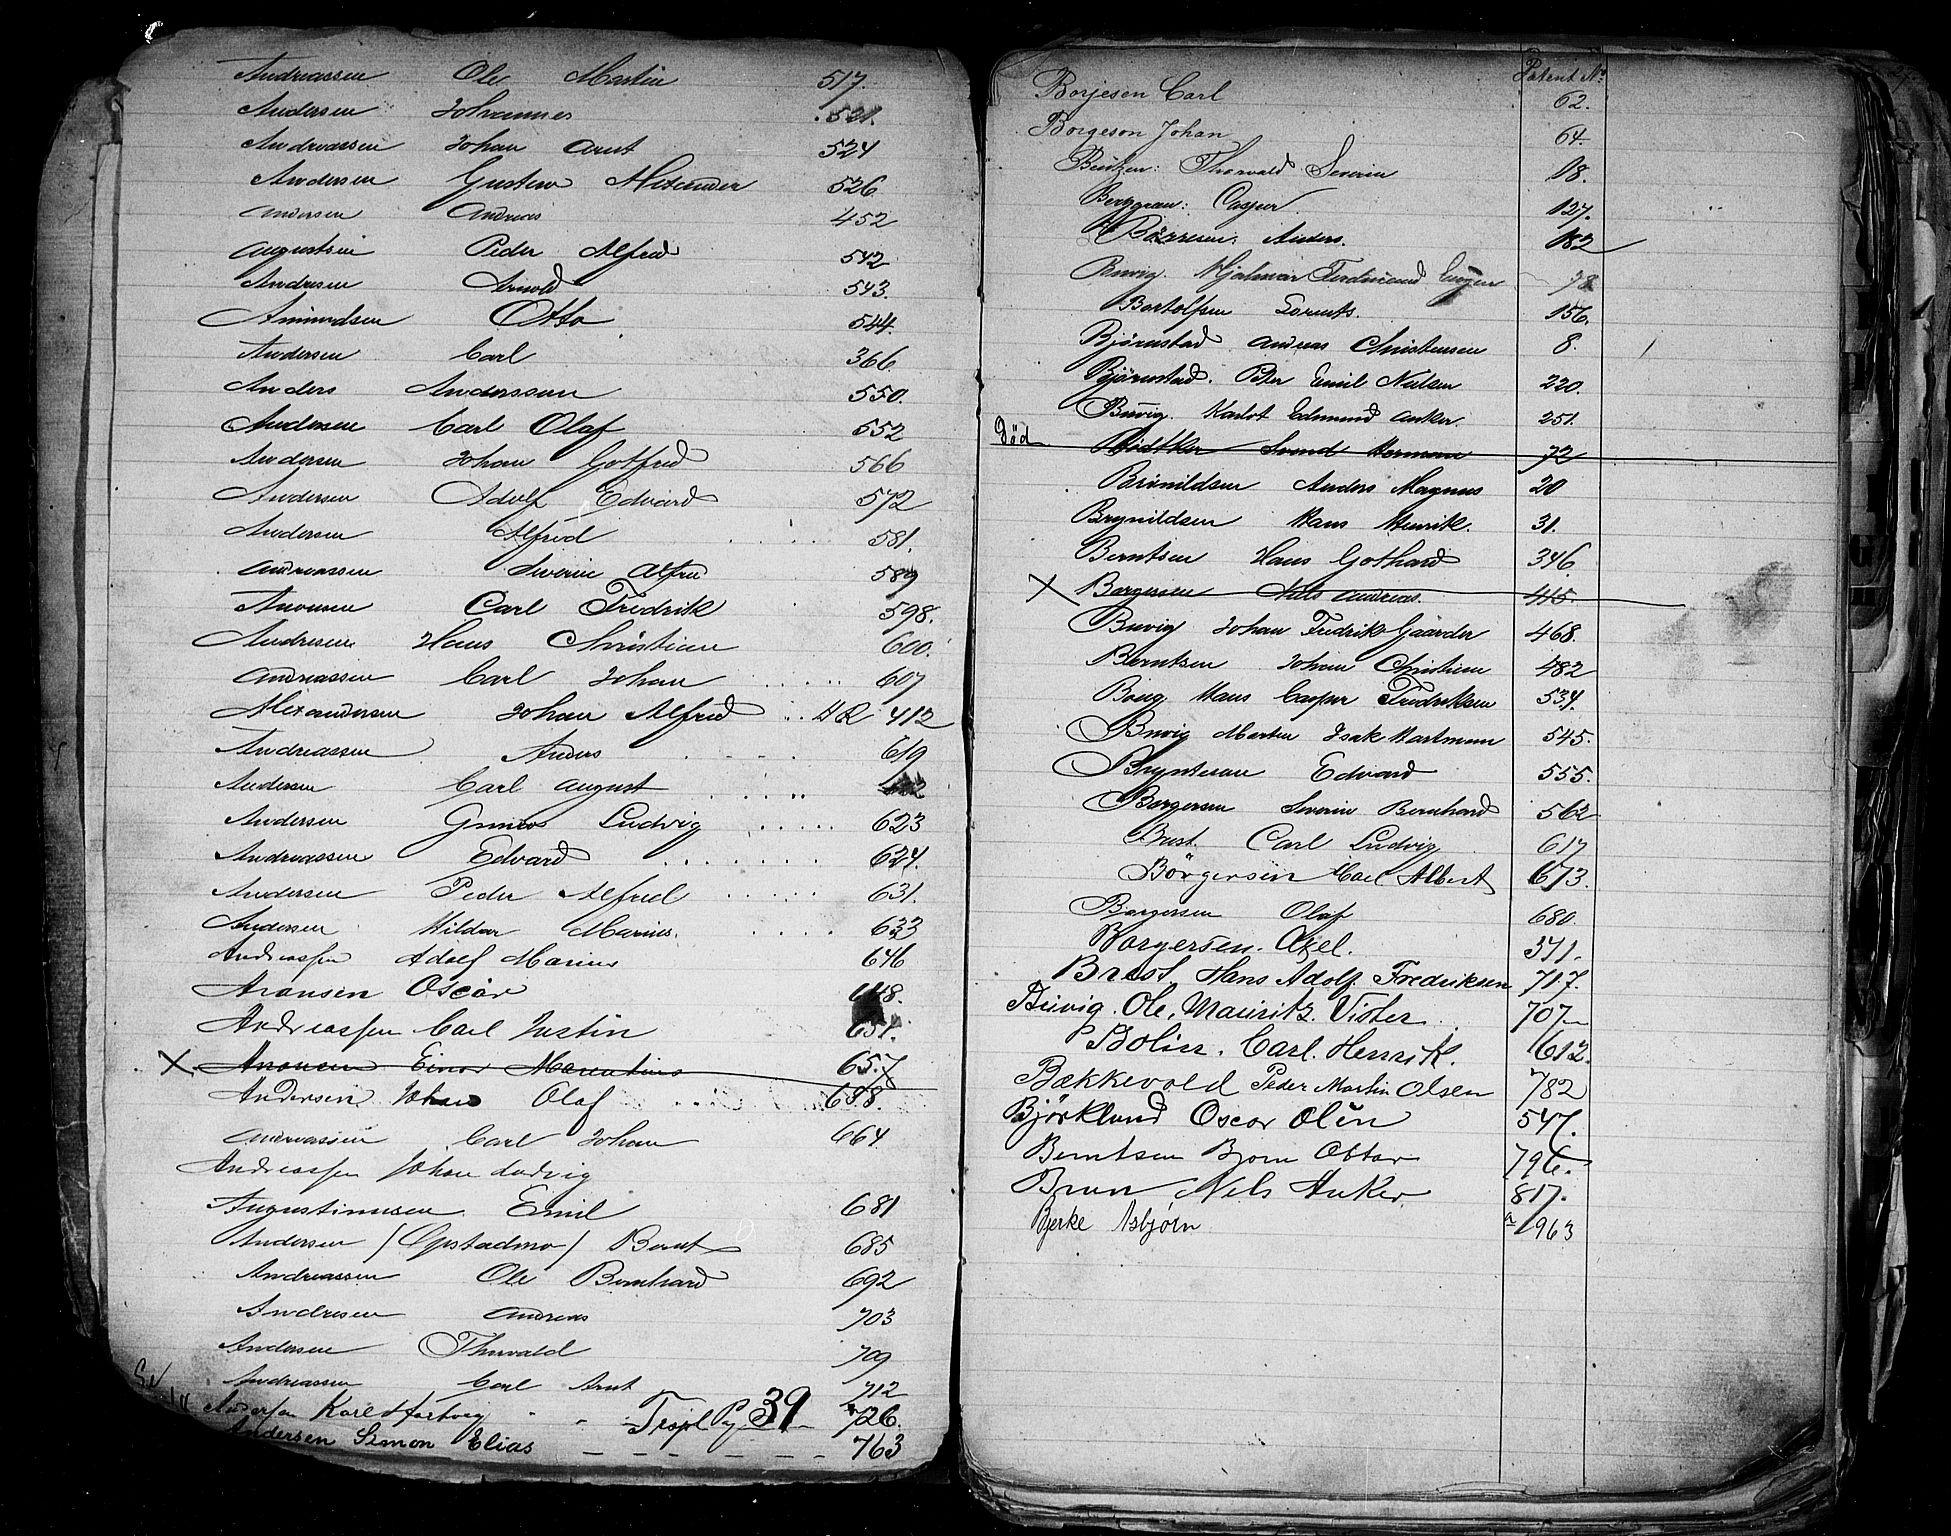 Andreassen Ole Martin 517.
Andersen Johannes 521.
Andreassen Johan Arnt 524
Andersen Gustav Alexander 526
Andersen Andreas 452
Augustsen Peder Alfred 542
Andresen Arnold 543.
Amundsen Otto 544.
Andersen Carl 366
Anders Anderssen 550.
Andersen Carl Olaf 552
Andersen Johan Gotfred 566
Andersen Adolf Edvard 572
Andersen Alfred 581.
Andreassen Severin Alfred 589
Aronsen Carl Fredrik 598.
Andresen Hans Christian 600.
Andreassen Carl Johan 607
Alexandersen Johan Alfred AR 412
Andreassen Anders 619
Andersen Carl August
Andersen Ludvig 623
Andreassen Edvard 624.
Andersen Peder Alfred 631.
Andersen Hildar Marius. 633
Andreassen Adolf Marius 646
Aronsen Oscar 648.
Andreassen Carl Justin 651.
X Aronsen Einar Marentius 657
Andersen Johan Olaf 658.
Andreassen Carl Johan 664
Andreassen Johan Ludvig
Augustinusen Emil 681
Andersen /Opstadmo/ Bernt 685
Andreassen Ole Bernhard 692
Andresen Andreas 703
Andersen Thorvald 709
Andreassen Carl Arnt 712
Andersen Karl Hartvig 726. Pag 39
Andersen Simon Elias 763
Patent No
Borjesen Carl 62.
Borgeson Johan 64.
Bentzen: Thorvald Severin 18.
Berggren: Casper 127.
Børresen: Anders. 182
Buvig Hjalmar Ferdinand Eugen 78
Bartolfsen Lorents. 156.
Bjørnstad Andreas Christensen 8.
Bjørnstad. Peter Emil Nielsen 220.
Buvig. Karlot Edmund Anker. 251.
Död Bödtker Svend Herman 72
Brynildsen Anders Magnus 20
Brynildsen Hans Henrik. 31.
Berntsen Hans Gothard 346
X Borgersen Nils Andreas. 415.
Buvig Johan Fredrik Gaarder 468.
Berntsen Johan Christian 482
Berg Hans Casper Fredriksen 534.
Buvig Martin Isak Hartman 545.
Bryntesen Edvard 555.
Borgersen Severin Bernhard 562
Brest. Carl Ludvig 617
Börgersen Karl Albert 673.
Borgersen Olaf 680.
Borgersen. Axel. 371.
Brest, Hans Adolf Fredriksen 717.
Buvig. Ole, Mauritz. Victer 707
Bolin. Carl. Henrik. 612.
Bækkevold Peder Martin Olsen 782
Björklund Oscar Olin 547.
Berntsen Bjorn Ottar 796.
Brun Nils Anker 817.
Bjerke Asbjørn 963